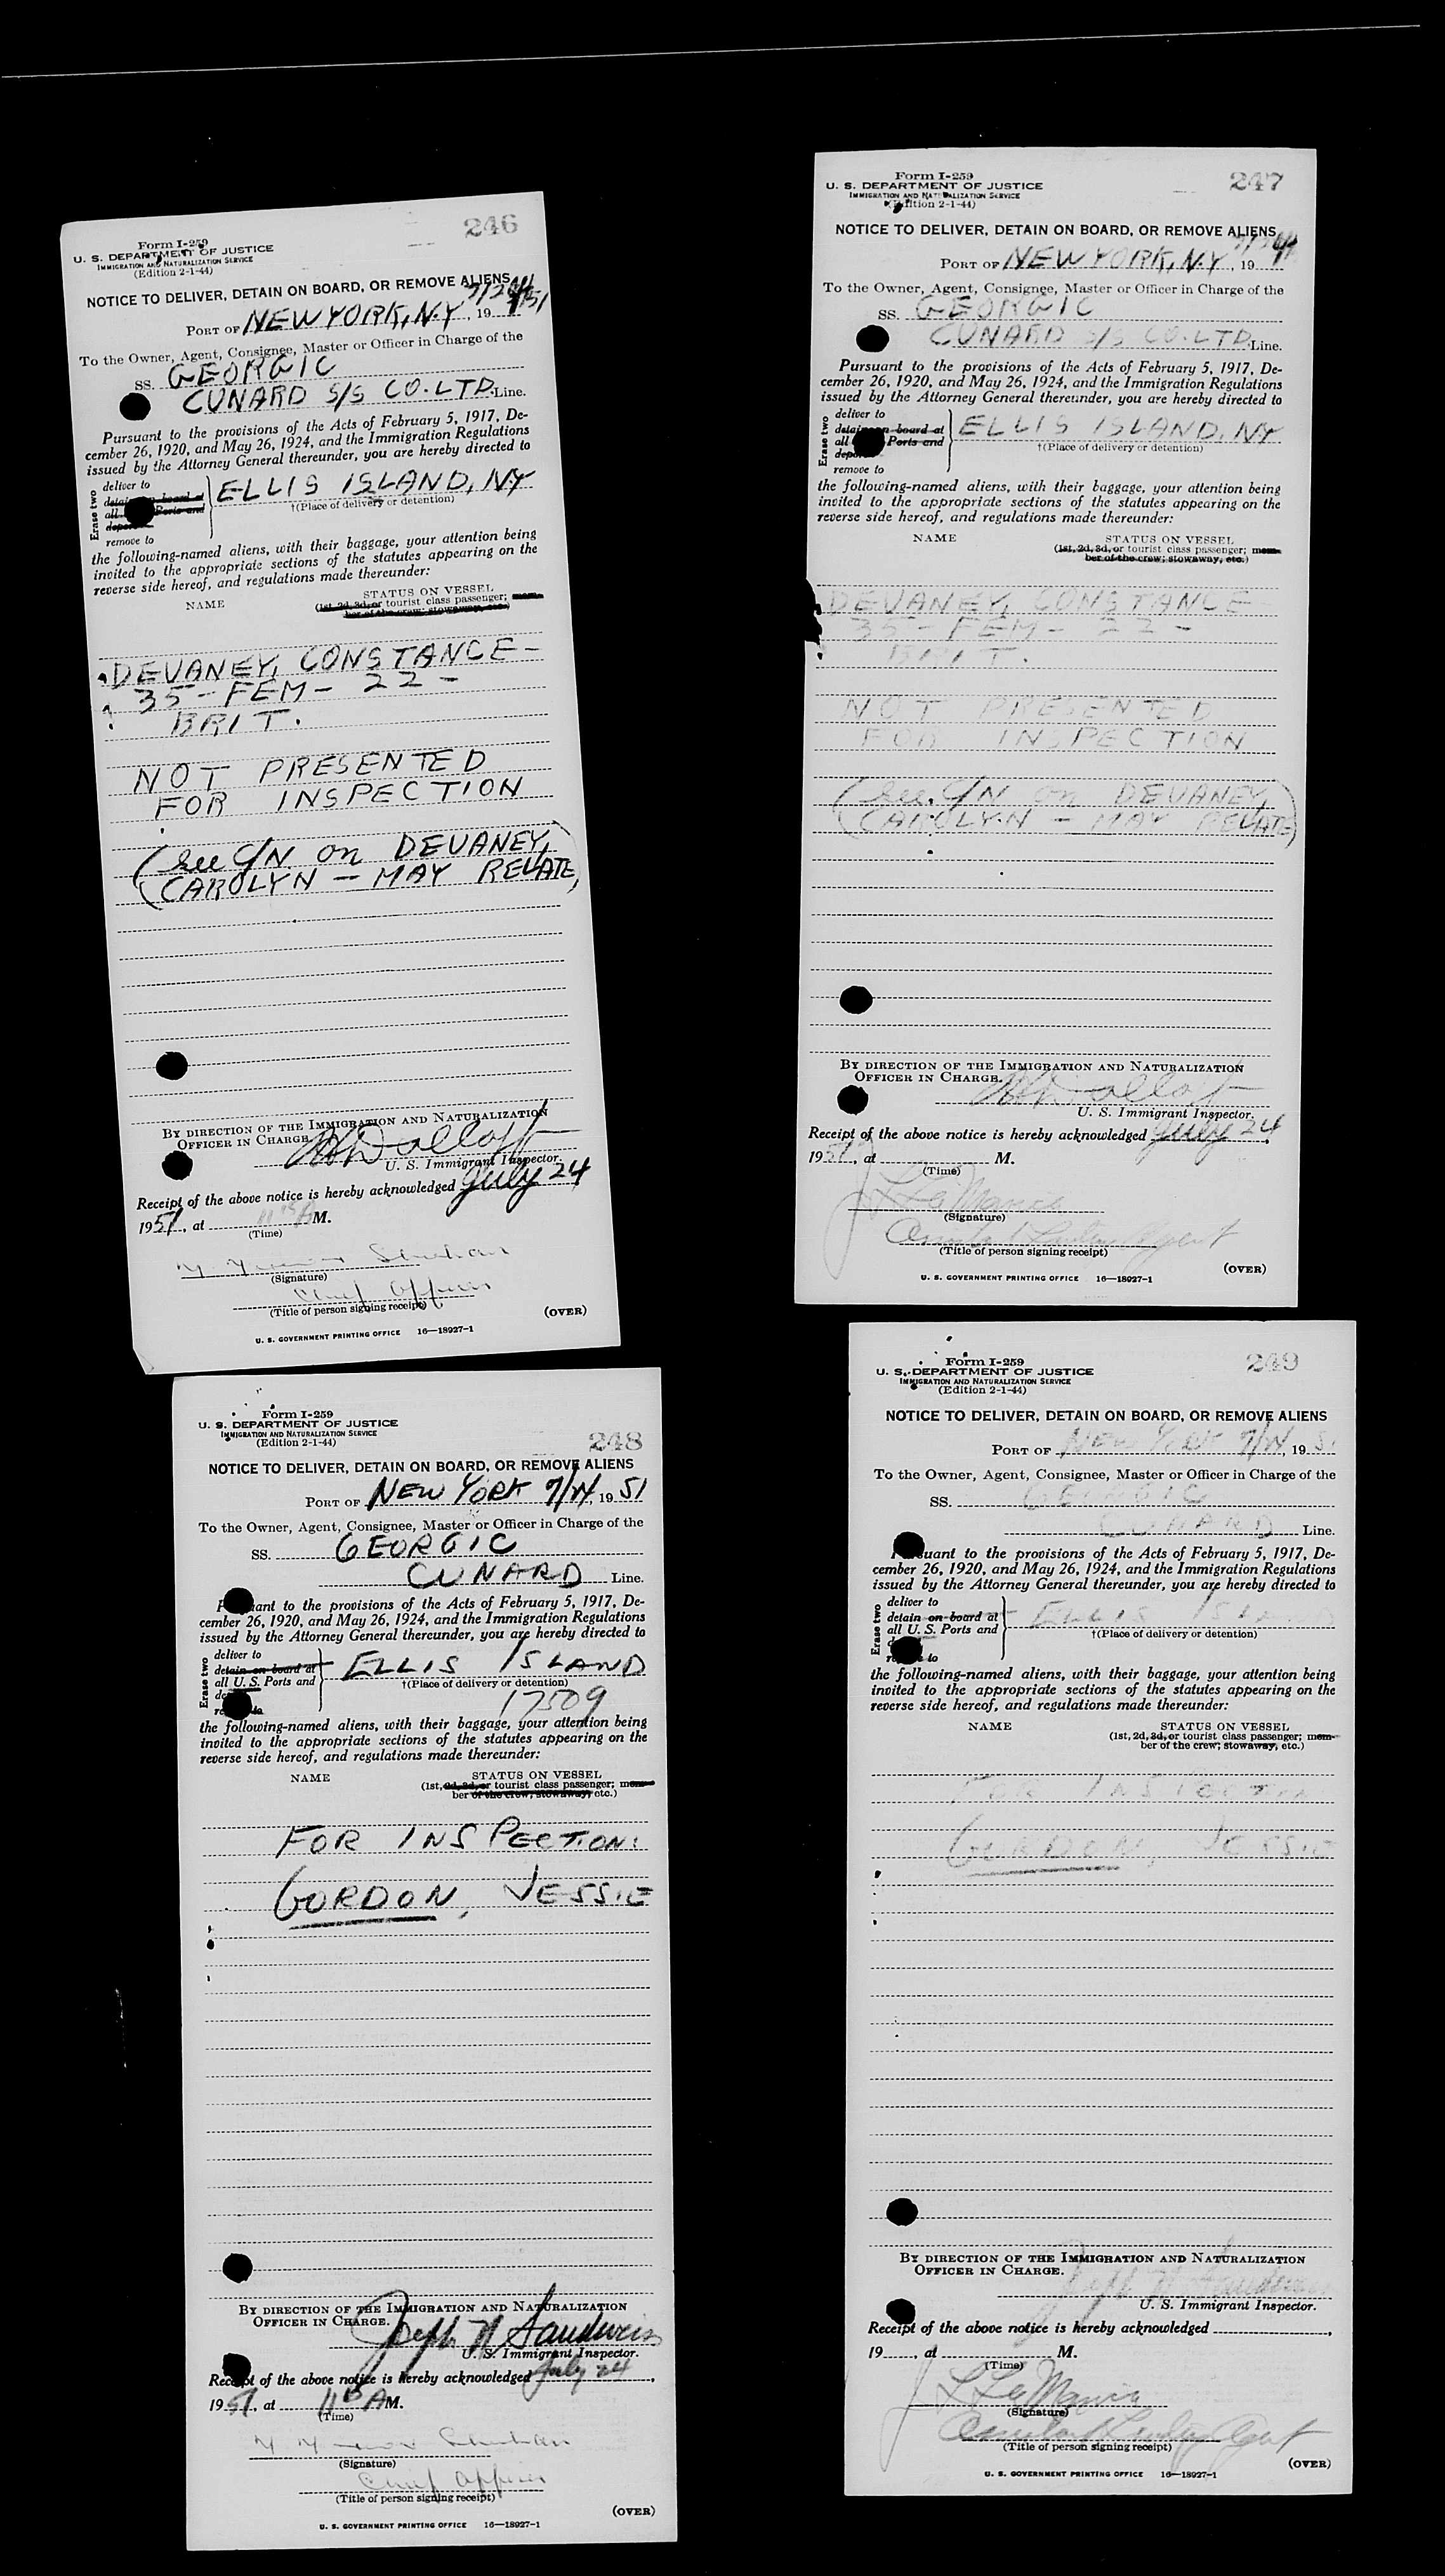 246
Form I-259
U. S. DEPARTMENT OF JUSTICE
IMMIGRATION AND NATURALIZATION SERVICE
(Edition 2-1-44)
NOTICE TO DELIVER, DETAIN ON BOARD, OR REMOVE ALIENS
PORT OF NEW YORK, N.Y., 19
To the Owner, Agent, Consignee, Master or Officer in Charge of the
SS. GEORGIC
CUNARD S/S CO. LTD. Line.
Pursuant to the provisions of the Acts of February 5, 1917, De-
cember 26, 1920, and May 26, 1924, and the Immigration Regulations
issued by the Attorney General thereunder, you are hereby directed to
Erase two
deliver to
detain on board at
all Ports and
deport
remove to
ELLIS ISLAND, NY
†(Place of delivery or detention)
the following-named aliens, with their baggage, your attention being
invited to the appropriate sections of the statutes appearing on the
reverse side hereof, and regulations made thereunder:
NAME STATUS ON VESSEL
(1st, 2d, 3d, or tourist class passenger; mem-
ber of the crew; stowaway, etc.)
DEVANEY, CONSTANCE -
35 - FEM - 22 -
BRIT.
NOT PRESENTED
FOR INSPECTION
(See C/N on DEVANEY,
CAROLYN - MAY RELATE)
BY DIRECTION OF THE IMMIGRATION AND NATURALIZATION
OFFICER IN CHARGE.
U. S. Immigrant Inspector.
Receipt of the above notice is hereby acknowledged July 24
1951, at 11 15 A M.
(Time)
(Signature)
Chief Officer
(Title of person signing receipt)
(OVER)
U. S. GOVERNMENT PRINTING OFFICE 16—18927-1
247
Form I-259
U. S. DEPARTMENT OF JUSTICE
IMMIGRATION AND NATURALIZATION SERVICE
(Edition 2-1-44)
NOTICE TO DELIVER, DETAIN ON BOARD, OR REMOVE ALIENS
PORT OF NEW YORK, N.Y, 19
To the Owner, Agent, Consignee, Master or Officer in Charge of the
SS. GEORGIC
CUNARD S/S CO. LTD. Line.
Pursuant to the provisions of the Acts of February 5, 1917, De-
cember 26, 1920, and May 26, 1924, and the Immigration Regulations
issued by the Attorney General thereunder, you are hereby directed to
Erase two
deliver to
detain on board at
all Ports and
deport
remove to
ELLIS ISLAND, NY
†(Place of delivery or detention)
the following-named aliens, with their baggage, your attention being
invited to the appropriate sections of the statutes appearing on the
reverse side hereof, and regulations made thereunder:
NAME STATUS ON VESSEL
(1st, 2d, 3d, or tourist class passenger; mem-
ber of the crew; stowaway, etc.)
DEVANEY, CONSTANCE
35 - FEM - 22 -
BRIT.
NOT PRESENTED
FOR INSPECTION
(See C/N on DEVANEY,
CAROLYN - MAY RELATE)
BY DIRECTION OF THE IMMIGRATION AND NATURALIZATION
OFFICER IN CHARGE.
U. S. Immigrant Inspector.
Receipt of the above notice is hereby acknowledged July 24,
1951, at M.
(Time)
(Signature)
Agent
(Title of person signing receipt)
(OVER)
U. S. GOVERNMENT PRINTING OFFICE 16—18927-1
248
Form I-259
U. S. DEPARTMENT OF JUSTICE
IMMIGRATION AND NATURALIZATION SERVICE
(Edition 2-1-44)
NOTICE TO DELIVER, DETAIN ON BOARD, OR REMOVE ALIENS
PORT OF NEW YORK 7/24, 1951
To the Owner, Agent, Consignee, Master or Officer in Charge of the
SS. GEORGIC
CUNARD Line.
Pursuant to the provisions of the Acts of February 5, 1917, De-
cember 26, 1920, and May 26, 1924, and the Immigration Regulations
issued by the Attorney General thereunder, you are hereby directed to
Erase two
deliver to
detain on board at
all U. S. Ports and
ELLIS ISLAND
†(Place of delivery or detention)
17509
the following-named aliens, with their baggage, your attention being
invited to the appropriate sections of the statutes appearing on the
reverse side hereof, and regulations made thereunder:
NAME STATUS ON VESSEL
(1st, 2d, 3d, or tourist class passenger; mem-
ber of the crew; stowaway, etc.)
FOR INSPECTION:
GORDON, JESSIE
BY DIRECTION OF THE IMMIGRATION AND NATURALIZATION
OFFICER IN CHARGE.
U. S. Immigrant Inspector.
Receipt of the above notice is hereby acknowledged July 24,
1951, at 11 15 AM.
(Time)
(Signature)
Chief Officer
(Title of person signing receipt)
(OVER)
U. S. GOVERNMENT PRINTING OFFICE 16—18927-1
249
Form I-259
U. S. DEPARTMENT OF JUSTICE
IMMIGRATION AND NATURALIZATION SERVICE
(Edition 2-1-44)
NOTICE TO DELIVER, DETAIN ON BOARD, OR REMOVE ALIENS
PORT OF NEW YORK 7/24, 1951
To the Owner, Agent, Consignee, Master or Officer in Charge of the
SS. GEORGIC
CUNARD Line.
Pursuant to the provisions of the Acts of February 5, 1917, De-
cember 26, 1920, and May 26, 1924, and the Immigration Regulations
issued by the Attorney General thereunder, you are hereby directed to
Erase two
deliver to
detain on board at
all U. S. Ports and
ELLIS ISLAND
†(Place of delivery or detention)
the following-named aliens, with their baggage, your attention being
invited to the appropriate sections of the statutes appearing on the
reverse side hereof, and regulations made thereunder:
NAME STATUS ON VESSEL
(1st, 2d, 3d, or tourist class passenger; mem-
ber of the crew; stowaway, etc.)
FOR INSPECTION
GORDON, JESSIE
BY DIRECTION OF THE IMMIGRATION AND NATURALIZATION
OFFICER IN CHARGE.
U. S. Immigrant Inspector.
Receipt of the above notice is hereby acknowledged ,
19 , at M.
(Time)
(Signature)
(Title of person signing receipt)
(OVER)
U. S. GOVERNMENT PRINTING OFFICE 16—18927-1